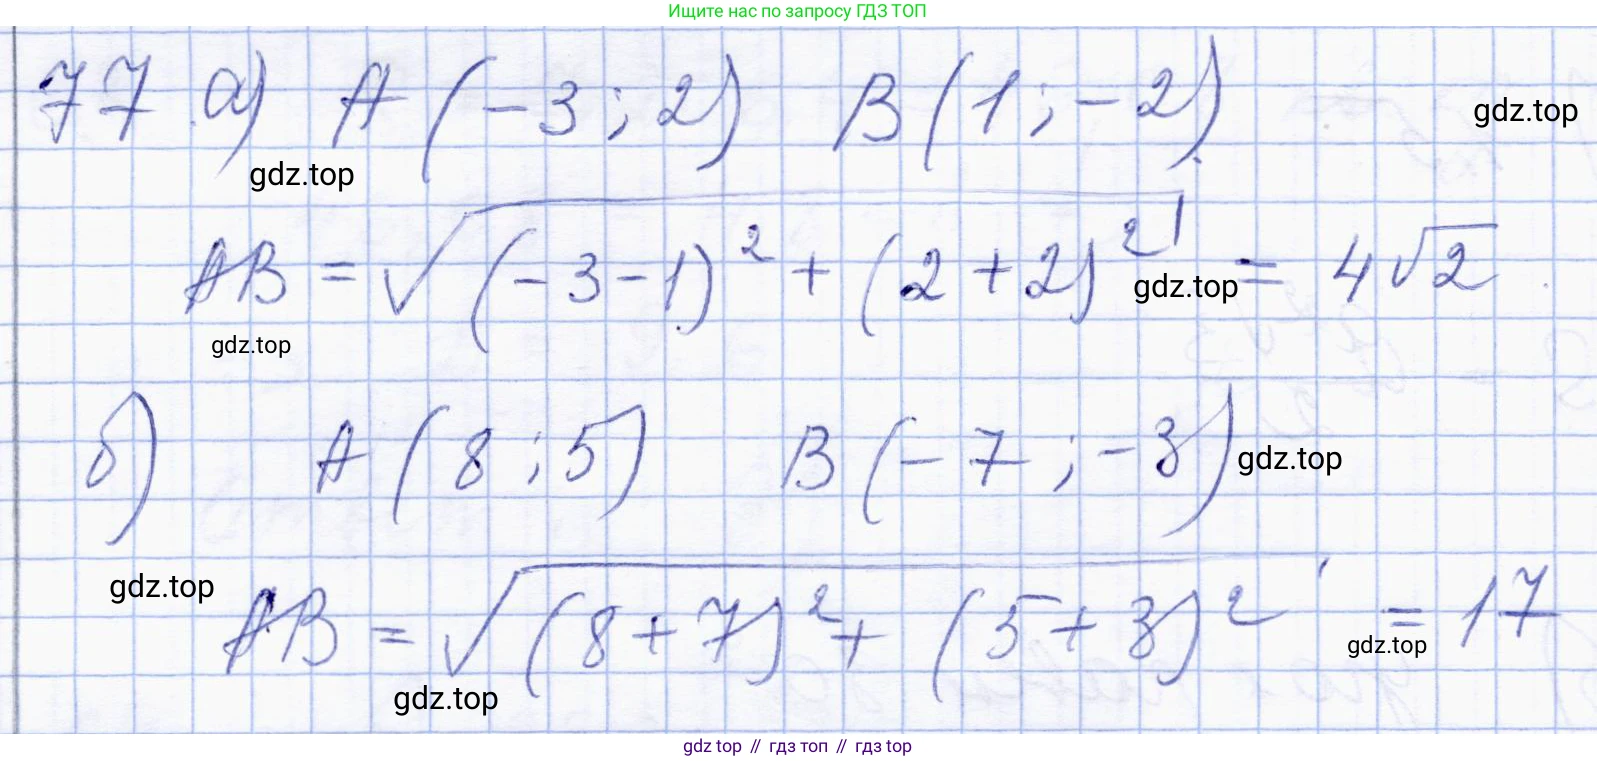 Ищите нас по запросу ГДЗ ТОП
77 а) A (-3 ; 2) B (1 ; -2)
gdz.top
gdz.top
AB = √((-3-1)² + (2+2)²) = 4√2
gdz.top
gdz.top
б) A (8 ; 5) B (-7 ; -3)
gdz.top
gdz.top
AB = √((8+7)² + (5+3)²) = 17
gdz.top
gdz.top
gdz top // гдз топ // гдз top